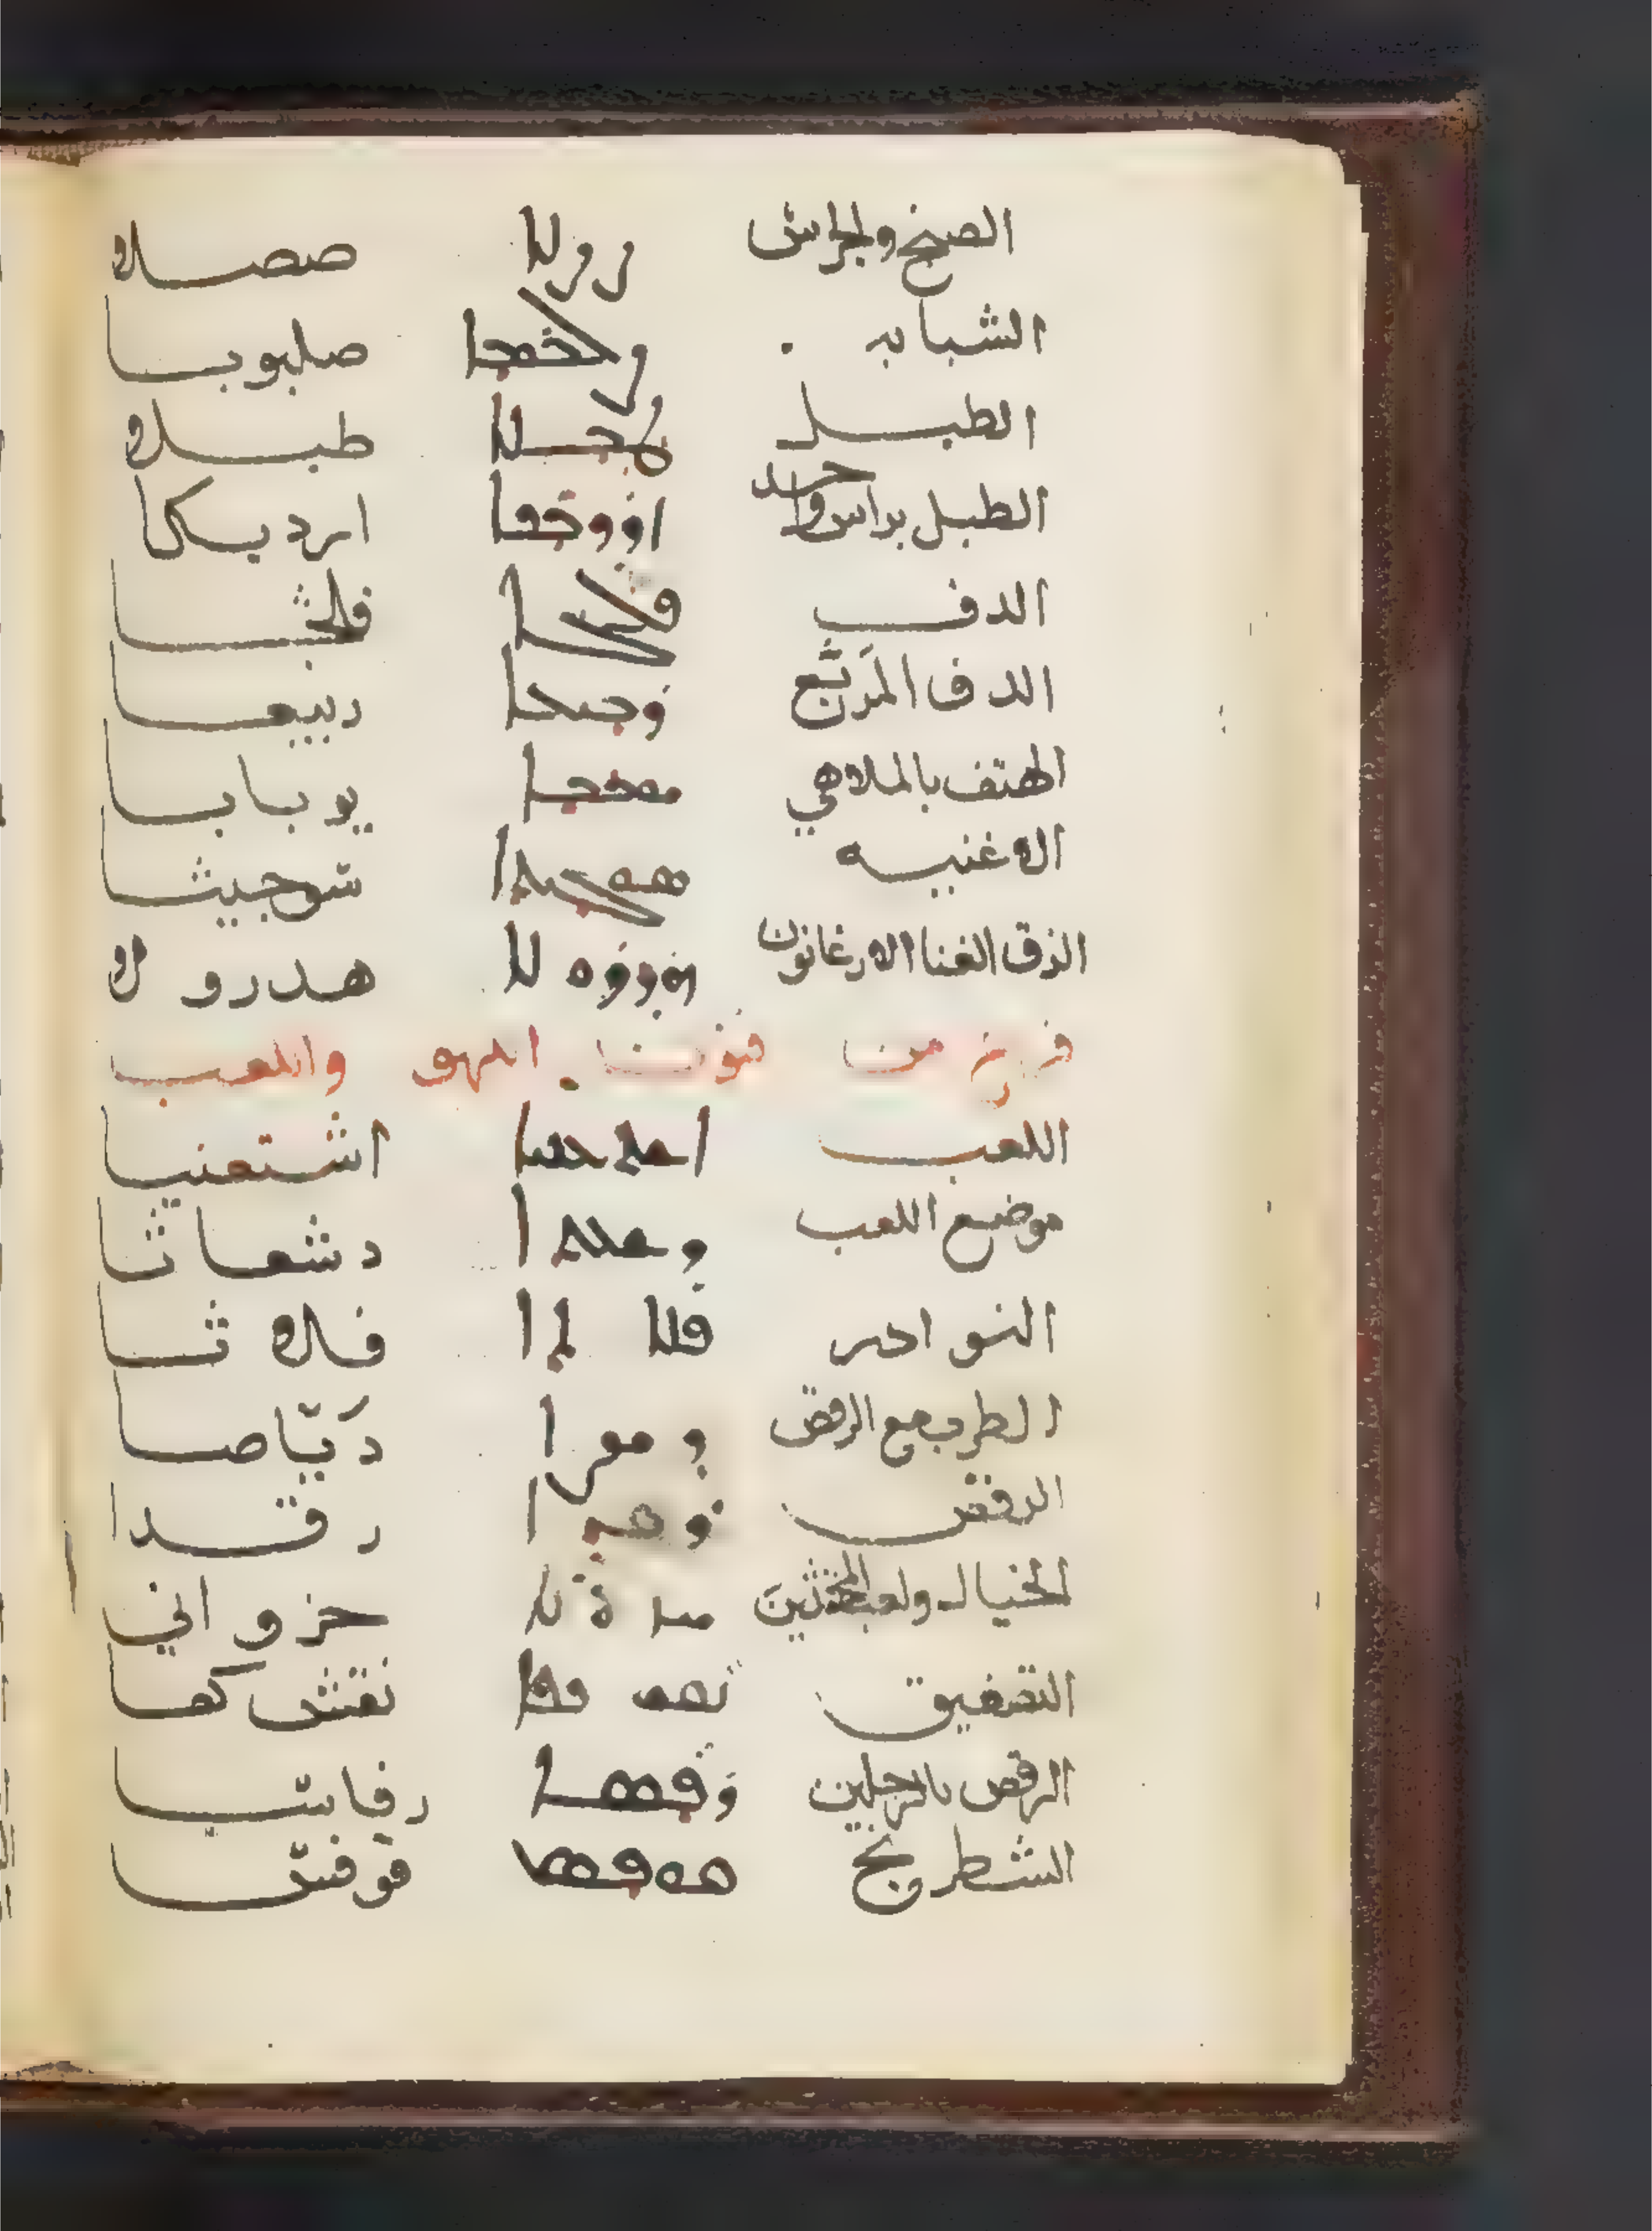 الصنج والجراس ܨܨܠܐ صصلا
الشبابه ܨܠܒܘܒܐ صلبوبا
الطبل ܛܒܠܐ طبلا
الطبل براس واحد ܐܪܕܝܟܐ ارديكا
الدف ܦܠܓܐ فلجا
الدف المَربَّع ܪܒܝܥܐ ربيعا
الهتف بالملاهي ܝܘܒܒܐ يوبابا
الاغنيه ܣܘܓܝܬܐ سوجيثا
الزق الغنا الارغانون ܗܕܪܘܠܐ هدرولا
فرع من فنون اللهو واللعب
اللعب ܐܫܬܥܢܝܐ اشتعنيا
موضع اللعب ܕܫܥܬܐ دشعاثا
النوادر ܦܠܐܬܐ فلاثا
الطرب مع الرقص ܕܝܨܐ دَيّاصا
الرقص ܪܩܕܐ رقدا
الخيال ولعب المخنثين حزواني
التصفيق ܢܩܫ ܟܦܐ نقش كفا
الرقص بالرجلين ܪܦܣܐ رفاسا
الشطرنج ܩܘܦܣܐ قوفسا